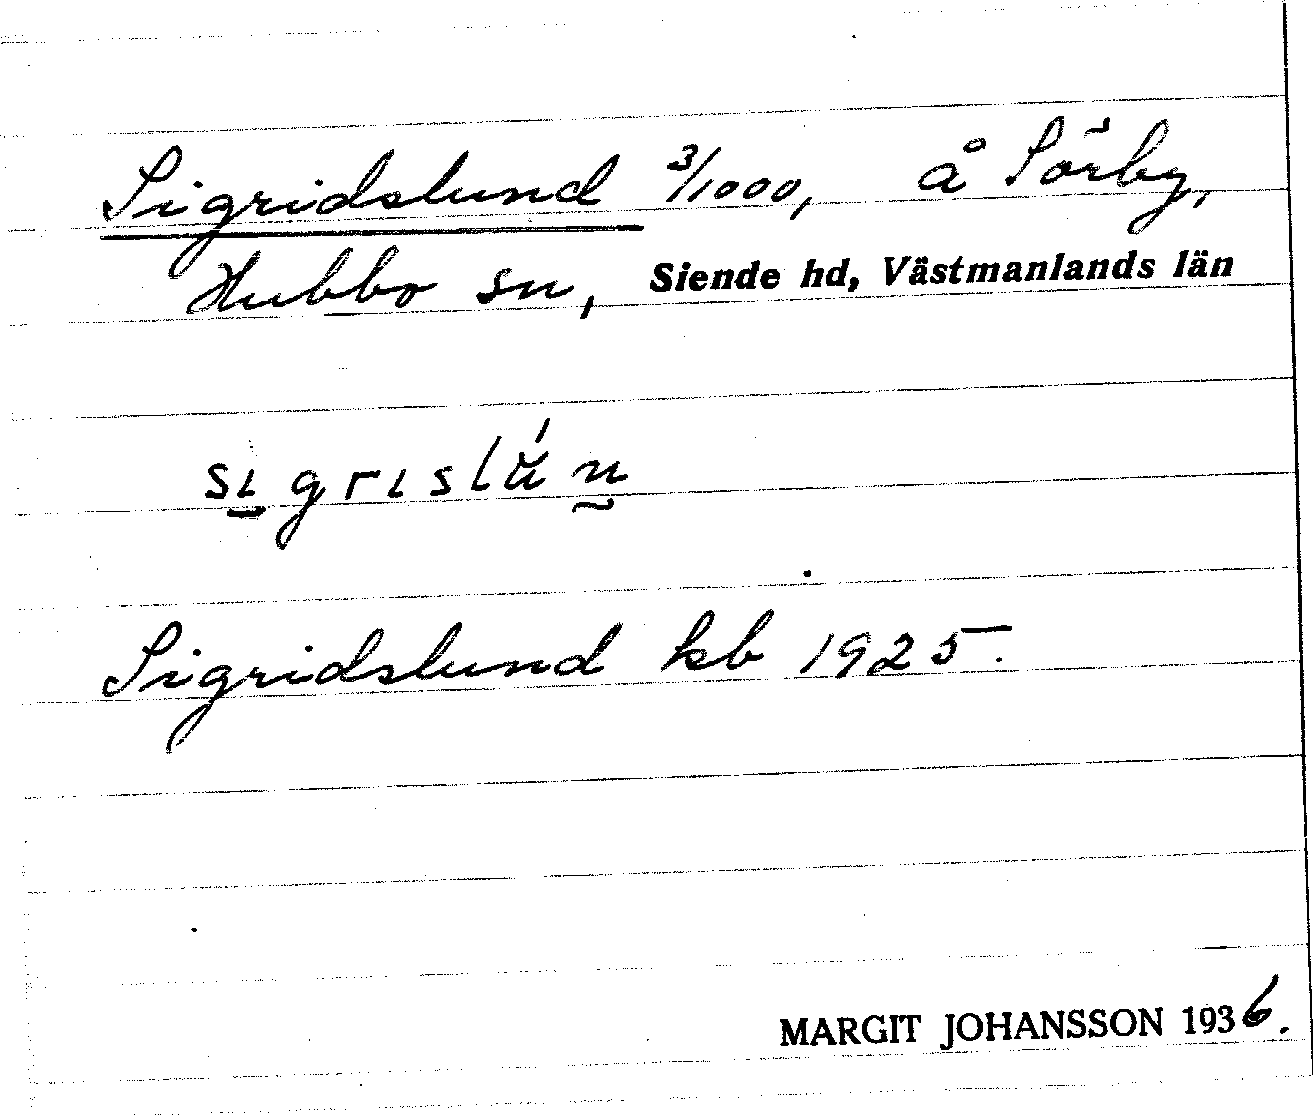 Sigridslund 3/1000, å Sörby,
Hubbo sn, Siende hd, Västmanlands län
sɩ̱grɩslú̆n̰
Sigridslund kb 1925.
MARGIT JOHANSSON 1936.